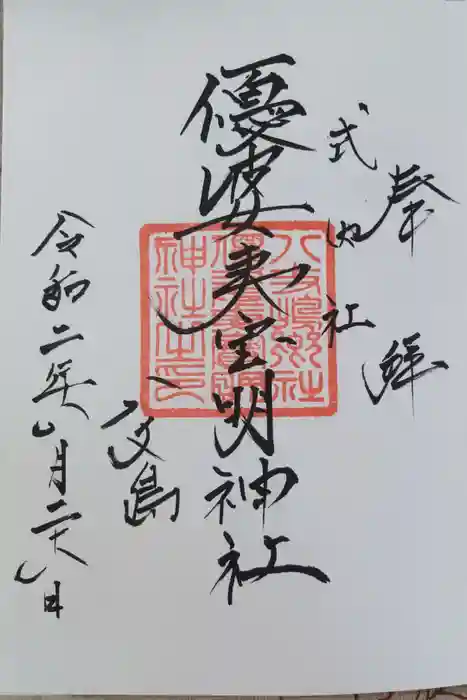 奉拝
式内社
優婆夷宝明神社
八丈島
令和二年
月
日
八丈嶋鄉社
優婆夷寶明
神社之印